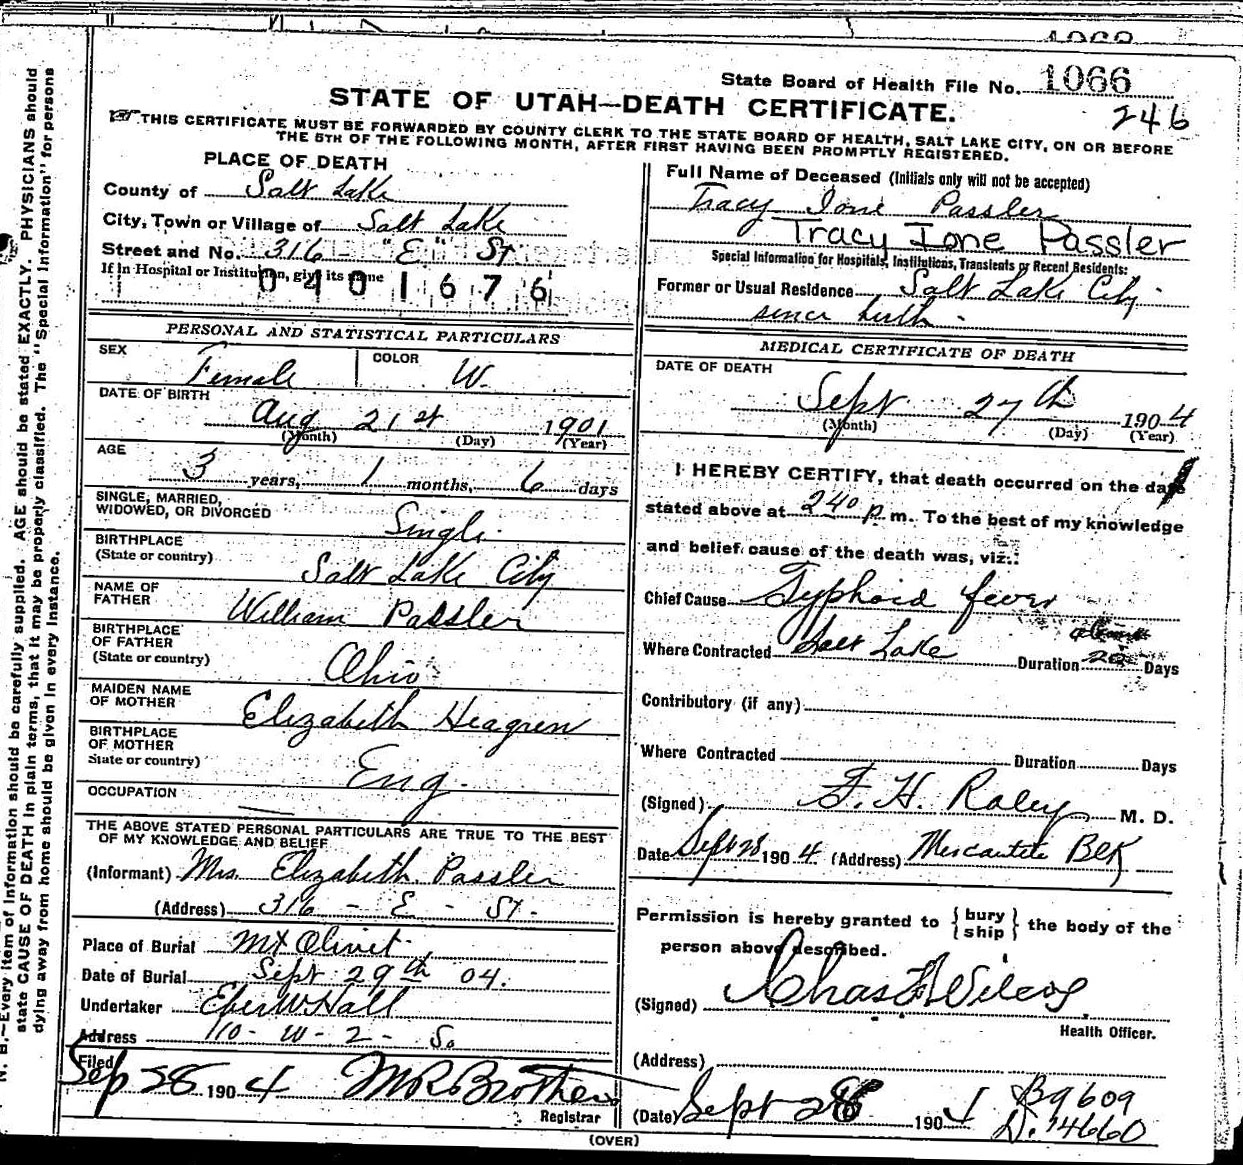 State Board of Health File No. 1066
246
STATE OF UTAH—DEATH CERTIFICATE.
THIS CERTIFICATE MUST BE FORWARDED BY COUNTY CLERK TO THE STATE BOARD OF HEALTH, SALT LAKE CITY, ON OR BEFORE
THE 5TH OF THE FOLLOWING MONTH, AFTER FIRST HAVING BEEN PROMPTLY REGISTERED.
PLACE OF DEATH
County of Salt Lake
City, Town or Village of Salt Lake
Street and No. 316 "E" St
If in Hospital or Institution, give its name
0401676
Full Name of Deceased (Initials only will not be accepted)
Tracy Ione Passler
Tracy Ione Passler
Special Information for Hospitals, Institutions, Transients or Recent Residents:
Former or Usual Residence Salt Lake City
since birth
PERSONAL AND STATISTICAL PARTICULARS
SEX Female COLOR W.
DATE OF BIRTH
Aug 21st 1901
(Month) (Day) (Year)
AGE
3 years, 1 months, 6 days
SINGLE, MARRIED,
WIDOWED, OR DIVORCED Single
BIRTHPLACE
(State or country) Salt Lake City
NAME OF
FATHER William Passler
BIRTHPLACE
OF FATHER
(State or country) Ohio
MAIDEN NAME
OF MOTHER Elizabeth Heagren
BIRTHPLACE
OF MOTHER
State or country) Eng.
OCCUPATION
THE ABOVE STATED PERSONAL PARTICULARS ARE TRUE TO THE BEST
OF MY KNOWLEDGE AND BELIEF
(Informant) Mrs. Elizabeth Passler
(Address) 316 - E - St.
Place of Burial Mt Olivet
Date of Burial Sept 29th 04.
Undertaker Eber W Hall
Address 110 - W - 2 - So
Filed Sep 28 1904 M R Brothers
Registrar
MEDICAL CERTIFICATE OF DEATH
DATE OF DEATH
Sept 27th 1904
(Month) (Day) (Year)
I HEREBY CERTIFY, that death occurred on the date
stated above at 240 p m. To the best of my knowledge
and belief cause of the death was, viz.:
Chief Cause Typhoid fever
Where Contracted Salt Lake Duration about 20 Days
Contributory (if any)
Where Contracted Duration Days
(Signed) F. H. Raley M. D.
Date Sept 28 1904 (Address) Mercantile Blk
Permission is hereby granted to {bury
ship} the body of the
person above described.
(Signed) Chas F Wilcox
Health Officer.
(Address)
(Date) Sept 28 1904
B 9609
D. 14660
(OVER)
N. B.—Every item of information should be carefully supplied. AGE should be stated EXACTLY. PHYSICIANS should
state CAUSE OF DEATH in plain terms, that it may be properly classified. The "Special Information" for persons
dying away from home should be given in every instance.